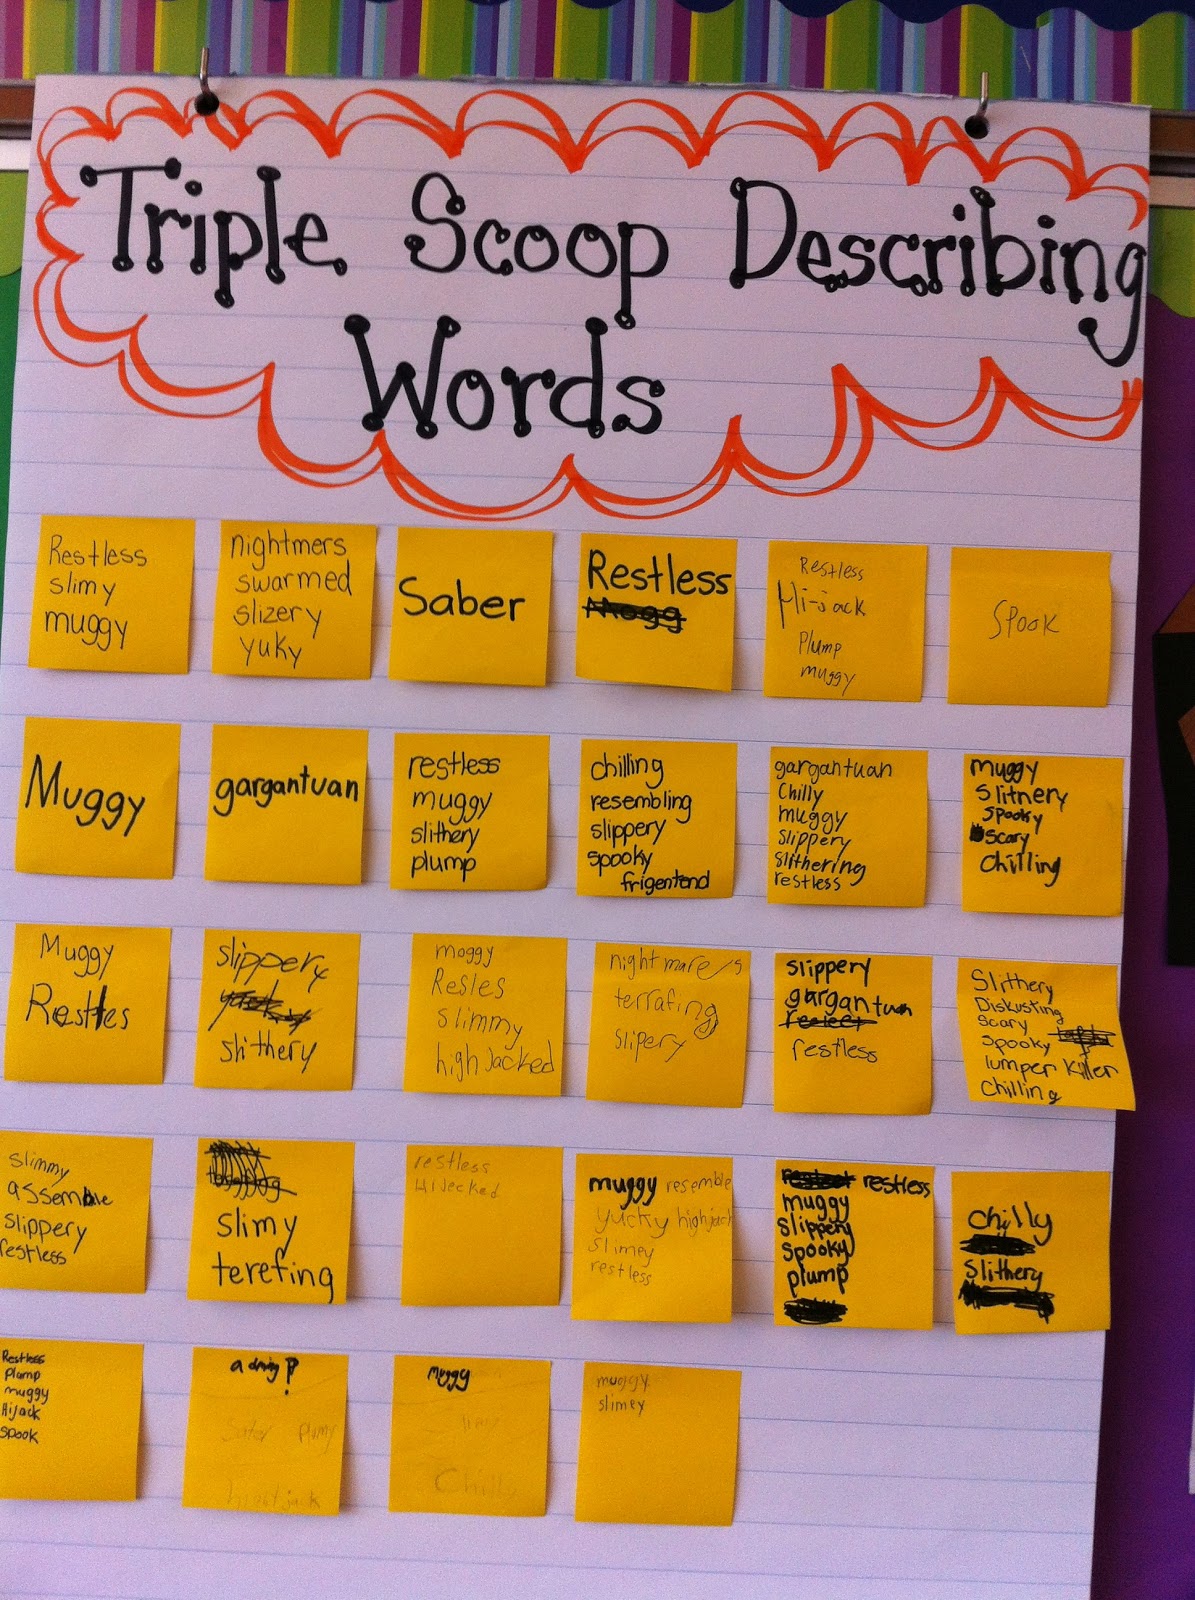 Triple Scoop Describing
Words
Restless
slimy
muggy
nightmers
swarmed
slizery
yuky
Saber
Restless
Mogg
Restless
Hi-jack
Plump
muggy
Spook
Muggy
gargantuan
restless
muggy
slithery
plump
chilling
resembling
slippery
spooky
frigentend
gargantuan
Chilly
muggy
slippery
slithering
restless
muggy
Slitnery
spooky
scary
chilling
Muggy
Restles
slippery
slithery
moggy
Resles
slimmy
high Jacked
nightmare/s
terrafing
slipery
slippery
gargantuan
restless
Slithery
Diskusting
scary
spooky
lumper killer
chilling
slimmy
assemble
slippery
restless
slimy
terefing
restless
HiJecked
muggy resemble
yucky highjack
slimey
restless
restless
muggy
slippery
spooky
plump
chilly
slithery
Restless
plump
muggy
HiJack
spook
Muggy
Chilly
muggy
slimey